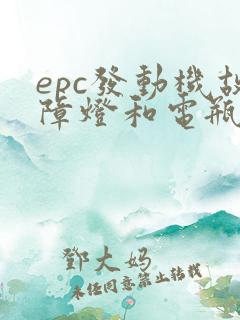 epc發動機故
障燈和電瓶
鄧大妈
未经同意禁止转载